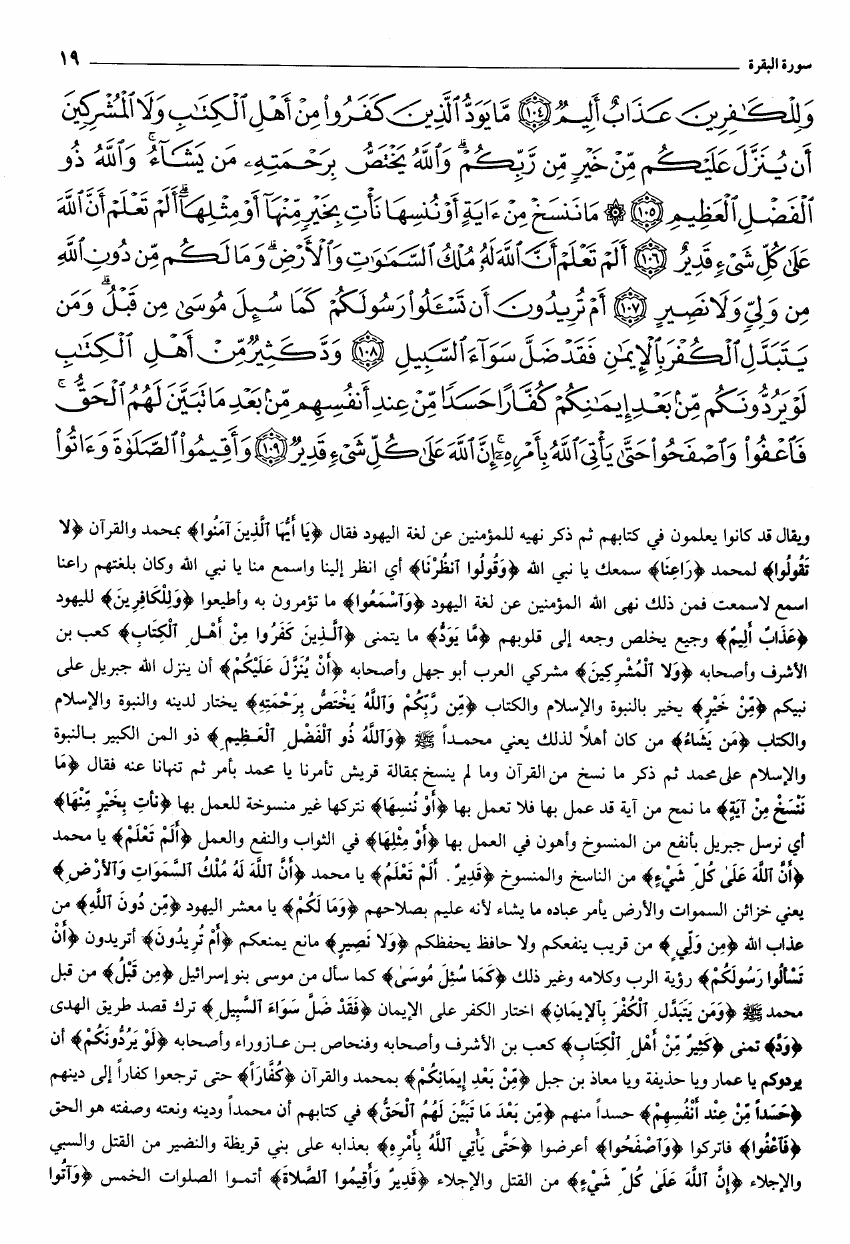 سورة البقرة ١٩
وَلِلْكَافِرِينَ عَذَابٌ أَلِيمٌ ١٠٤ مَّا يَوَدُّ الَّذِينَ كَفَرُوا مِنْ أَهْلِ الْكِتَابِ وَلَا الْمُشْرِكِينَ
أَن يُنَزَّلَ عَلَيْكُم مِّنْ خَيْرٍ مِّن رَّبِّكُمْ وَاللَّهُ يَخْتَصُّ بِرَحْمَتِهِ مَن يَشَاءُ وَاللَّهُ ذُو
الْفَضْلِ الْعَظِيمِ ١٠٥ ۞ مَا نَنسَخْ مِنْ ءَايَةٍ أَوْ نُنسِهَا نَأْتِ بِخَيْرٍ مِّنْهَا أَوْ مِثْلِهَا أَلَمْ تَعْلَمْ أَنَّ اللَّهَ
عَلَىٰ كُلِّ شَيْءٍ قَدِيرٌ ١٠٦ أَلَمْ تَعْلَمْ أَنَّ اللَّهَ لَهُ مُلْكُ السَّمَاوَاتِ وَالْأَرْضِ وَمَا لَكُم مِّن دُونِ اللَّهِ
مِن وَلِيٍّ وَلَا نَصِيرٍ ١٠٧ أَمْ تُرِيدُونَ أَن تَسْـَٔلُوا رَسُولَكُمْ كَمَا سُئِلَ مُوسَىٰ مِن قَبْلُ وَمَن
يَتَبَدَّلِ الْكُفْرَ بِالْإِيمَانِ فَقَدْ ضَلَّ سَوَاءَ السَّبِيلِ ١٠٨ وَدَّ كَثِيرٌ مِّنْ أَهْلِ الْكِتَابِ
لَوْ يَرُدُّونَكُم مِّن بَعْدِ إِيمَانِكُمْ كُفَّارًا حَسَدًا مِّنْ عِندِ أَنفُسِهِم مِّن بَعْدِ مَا تَبَيَّنَ لَهُمُ الْحَقُّ
فَاعْفُوا وَاصْفَحُوا حَتَّىٰ يَأْتِيَ اللَّهُ بِأَمْرِهِ إِنَّ اللَّهَ عَلَىٰ كُلِّ شَيْءٍ قَدِيرٌ ١٠٩ وَأَقِيمُوا الصَّلَوٰةَ وَءَاتُوا
ويقال قد كانوا يعلمون في كتابهم ثم ذكر نهيه للمؤمنين عن لغة اليهود فقال ﴿يَا أَيُّهَا الَّذِينَ آمَنُوا﴾ بمحمد والقرآن ﴿لَا
تَقُولُوا﴾ لمحمد ﴿رَاعِنَا﴾ سمعك يا نبي الله ﴿وَقُولُوا انظُرْنَا﴾ أي انظر إلينا واسمع منا يا نبي الله وكان بلغتهم راعنا
اسمع لاسمعت فمن ذلك نهى الله المؤمنين عن لغة اليهود ﴿وَاسْمَعُوا﴾ ما تؤمرون به وأطيعوا ﴿وَلِلْكَافِرِينَ﴾ لليهود
﴿عَذَابٌ أَلِيمٌ﴾ وجيع يخلص وجعه إلى قلوبهم ﴿مَّا يَوَدُّ﴾ ما يتمنى ﴿الَّذِينَ كَفَرُوا مِنْ أَهْلِ الْكِتَابِ﴾ كعب بن
الأشرف وأصحابه ﴿وَلَا الْمُشْرِكِينَ﴾ مشركي العرب أبو جهل وأصحابه ﴿أَنْ يُنَزَّلَ عَلَيْكُمْ﴾ أن ينزل الله جبريل على
نبيكم ﴿مِّنْ خَيْرٍ﴾ بخير بالنبوة والإسلام والكتاب ﴿مِّن رَّبِّكُمْ وَاللَّهُ يَخْتَصُّ بِرَحْمَتِهِ﴾ يختار لدينه والنبوة والإسلام
والكتاب ﴿مَن يَشَاءُ﴾ من كان أهلاً لذلك يعني محمداً ﷺ ﴿وَاللَّهُ ذُو الْفَضْلِ الْعَظِيمِ﴾ ذو المن الكبير بالنبوة
والإسلام على محمد ثم ذكر ما نسخ من القرآن وما لم ينسخ بمقالة قريش تأمرنا يا محمد بأمر ثم تنهانا عنه فقال ﴿مَا
نَنْسَخْ مِنْ آيَةٍ﴾ ما نمح من آية قد عمل بها فلا تعمل بها ﴿أَوْ نُنسِهَا﴾ نتركها غير منسوخة للعمل بها ﴿نَأْتِ بِخَيْرٍ مِّنْهَا﴾
أي نرسل جبريل بأنفع من المنسوخ وأهون في العمل بها ﴿أَوْ مِثْلِهَا﴾ في الثواب والنفع والعمل ﴿أَلَمْ تَعْلَمْ﴾ يا محمد
﴿أَنَّ اللَّهَ عَلَىٰ كُلِّ شَيْءٍ﴾ من الناسخ والمنسوخ ﴿قَدِيرٌ. أَلَمْ تَعْلَمْ﴾ يا محمد ﴿أَنَّ اللَّهَ لَهُ مُلْكُ السَّمَوَاتِ وَالْأَرْضِ﴾
يعني خزائن السموات والأرض يأمر عباده ما يشاء لأنه عليم بصلاحهم ﴿وَمَا لَكُمْ﴾ يا معشر اليهود ﴿مِّن دُونِ اللَّهِ﴾ من
عذاب الله ﴿مِن وَلِيٍّ﴾ من قريب ينفعكم ولا حافظ يحفظكم ﴿وَلَا نَصِيرٍ﴾ مانع يمنعكم ﴿أَمْ تُرِيدُونَ﴾ أتريدون ﴿أَنْ
تَسْأَلُوا رَسُولَكُمْ﴾ رؤية الرب وكلامه وغير ذلك ﴿كَمَا سُئِلَ مُوسَىٰ﴾ كما سأل من موسى بنو إسرائيل ﴿مِن قَبْلُ﴾ من قبل
محمد ﷺ ﴿وَمَن يَتَبَدَّلِ الْكُفْرَ بِالْإِيمَانِ﴾ اختار الكفر على الإيمان ﴿فَقَدْ ضَلَّ سَوَاءَ السَّبِيلِ﴾ ترك قصد طريق الهدى
﴿وَدَّ﴾ تمنى ﴿كَثِيرٌ مِّنْ أَهْلِ الْكِتَابِ﴾ كعب بن الأشرف وأصحابه وفنحاص بن عازوراء وأصحابه ﴿لَوْ يَرُدُّونَكُمْ﴾ أن
يردوكم يا عمار ويا حذيفة ويا معاذ بن جبل ﴿مِّنْ بَعْدِ إِيمَانِكُمْ﴾ بمحمد والقرآن ﴿كُفَّاراً﴾ حتى ترجعوا كفاراً إلى دينهم
﴿حَسَداً مِّنْ عِنْدِ أَنْفُسِهِمْ﴾ حسداً منهم ﴿مِّن بَعْدَ مَا تَبَيَّنَ لَهُمُ الْحَقُّ﴾ في كتابهم أن محمداً ودينه ونعته وصفته هو الحق
﴿فَاعْفُوا﴾ فاتركوا ﴿وَاصْفَحُوا﴾ أعرضوا ﴿حَتَّى يَأْتِيَ اللَّهُ بِأَمْرِهِ﴾ بعذابه على بني قريظة والنضير من القتل والسبي
والإجلاء ﴿إِنَّ اللَّهَ عَلَىٰ كُلِّ شَيْءٍ﴾ من القتل والإجلاء ﴿قَدِيرٌ وَأَقِيمُوا الصَّلَاةَ﴾ أتموا الصلوات الخمس ﴿وَآتُوا